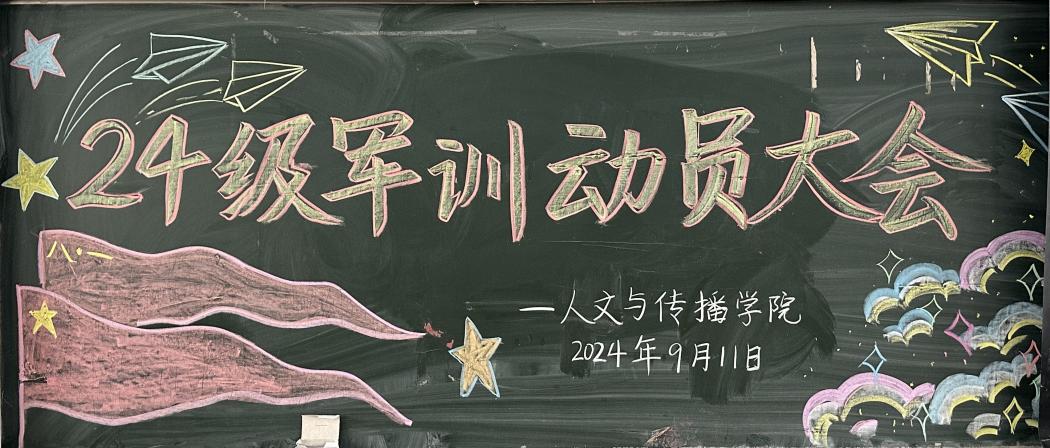 24级军训动员大会
八·一
一人文与传播学院
2024年9月11日